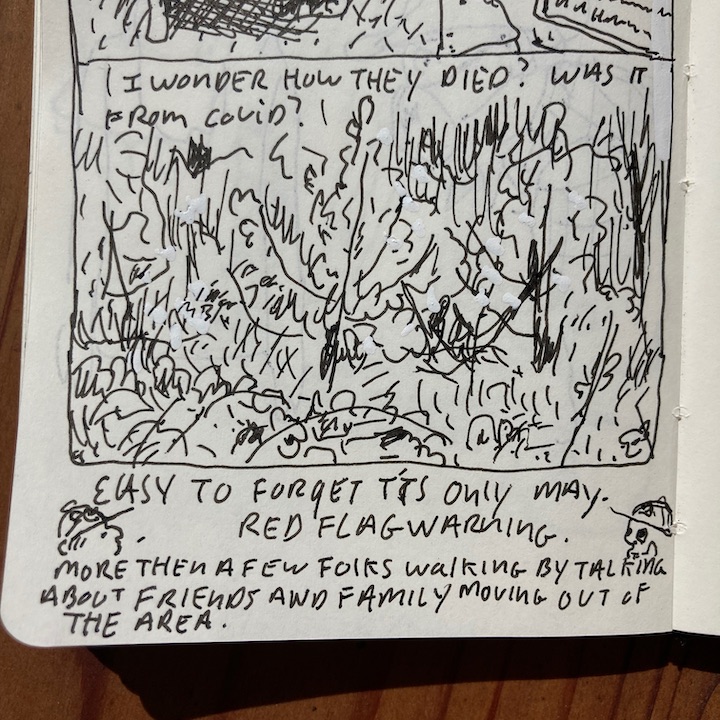 I WONDER HOW THEY DIED? WAS IT
FROM COVID?
EASY TO FORGET ITS ONLY MAY.
RED FLAG WARNING.
MORE THEN A FEW FOLKS WALKING BY TALKING
ABOUT FRIENDS AND FAMILY MOVING OUT OF
THE AREA.